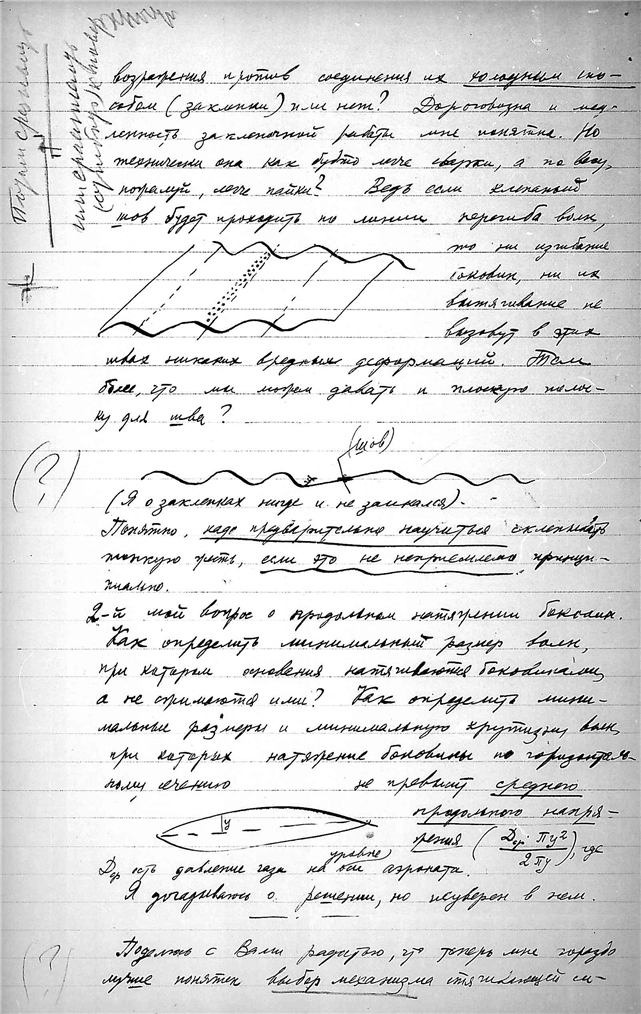 возражения против соединения их холодным спо-
собом (заклепки) или нет? Дороговизна и мед-
ленность заклепочной работы мне понятна. Но
технически она как будто легче сварки, а по весу,
пожалуй, легче пайки? Ведь если клепаный
шов будет проходить по линии перегиба волн,
то ни изгибание
боковин, ни их
вытягивание не
вызовут в этих
швах никаких вредных деформаций. Тем
более, что мы можем давать и плоскую полос-
ку для шва?
(шов)
(?)
(Я о заклепках нигде и не заикался).
Понятно, надо предварительно научиться склепывать
тонкую жесть, если это не неприемлемо принци-
пиально.
2-й мой вопрос о продольном натяжении боковин.
Как определить минимальный размер волн,
при котором основания натягиваются боковинами,
а не сжимаются ими? Как определить мини-
мальные размеры и минимальную крутизну волн,
при которых натяжение боковины по горизонталь-
ному сечению не превысит среднего
продольного напря-
жения (Dср· πy²/2πy), где
y
Dср есть давление газа на уровне оси аэроната.
Я догадываюсь о решении, но неуверен в нем.
(?)
Поделюсь с Вами радостью, что теперь мне гораздо
лучше понятен выбор механизма стягивающей си-